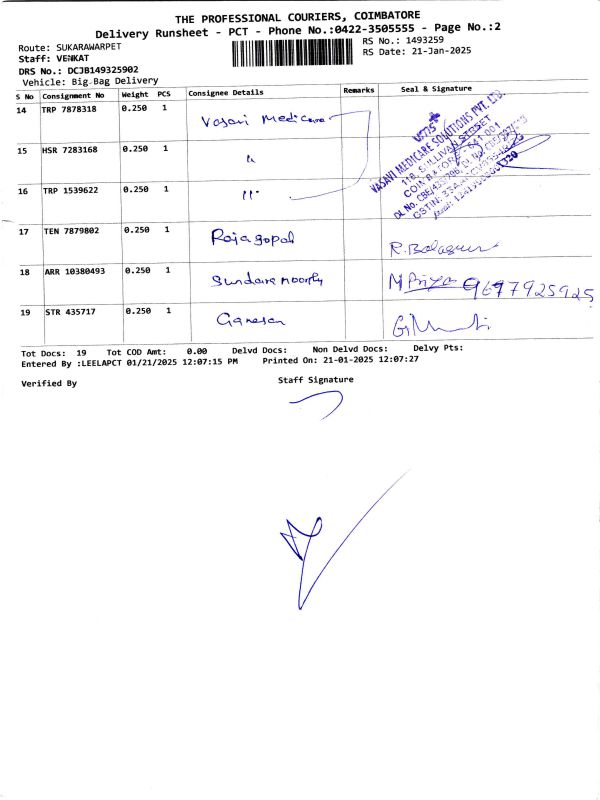 THE PROFESSIONAL COURIERS, COIMBATORE
Delivery Runsheet - PCT - Phone No.:0422-3505555 - Page No.:2
Route: SUKARAWARPET
RS No.: 1493259
Staff: VENKAT
RS Date: 21-Jan-2025
DRS No.: DCJB149325902
Vehicle: Big-Bag Delivery
S No Consignment No Weight PCS Consignee Details Remarks Seal & Signature
14 TRP 7878318 0.250 1 Vasavi Medicare
15 HSR 7283168 0.250 1 "
16 TRP 1539622 0.250 1 "
VASAVI MEDICARE SOLUTIONS PVT. LTD.
118, SULLIVAN STREET
COIMBATORE - 641 001
17 TEN 7879802 0.250 1 Rajagopal
18 ARR 10380493 0.250 1 Sundaramoorthy M Priya 9697925925
19 STR 435717 0.250 1 Ganesan
Tot Docs: 19 Tot COD Amt: 0.00 Delvd Docs: Non Delvd Docs: Delvy Pts:
Entered By :LEELAPCT 01/21/2025 12:07:15 PM Printed On: 21-01-2025 12:07:27
Verified By
Staff Signature